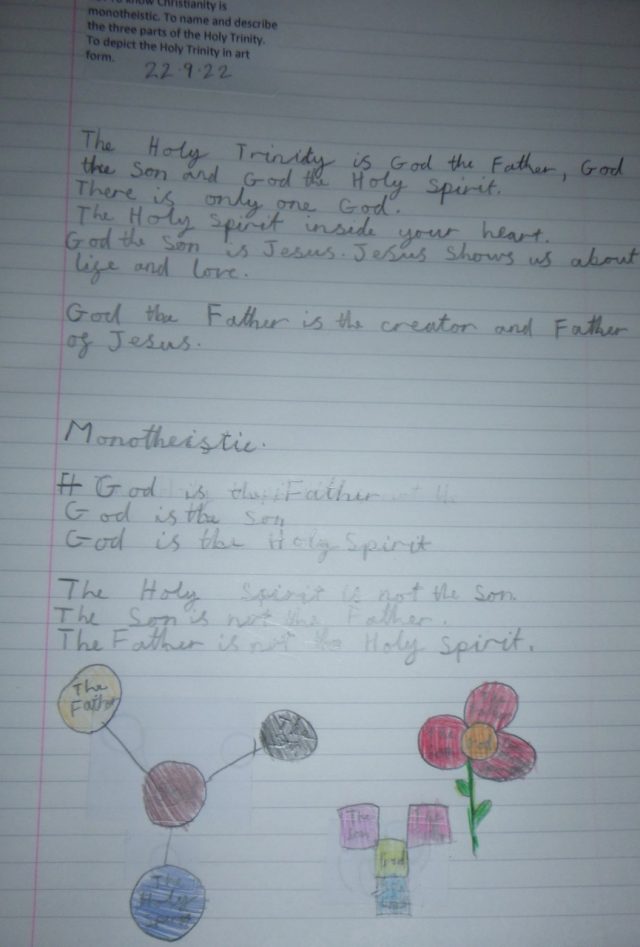 know Christianity is
monotheistic. To name and describe
the three parts of the Holy Trinity.
To depict the Holy Trinity in art
form.
22.9.22
The Holy Trinity is God the Father, God
the Son and God the Holy Spirit.
There is only one God.
The Holy Spirit inside your heart.
God the Son is Jesus. Jesus shows us about
life and love.
God the Father is the creator and Father
of Jesus.
Monotheistic.
God is the Father
God is the Son
God is the Holy Spirit
The Holy Spirit is not the Son.
The Son is not the Father.
The Father is not the Holy Spirit.
The
Father
The
Holy
Spirit
The
Son
God